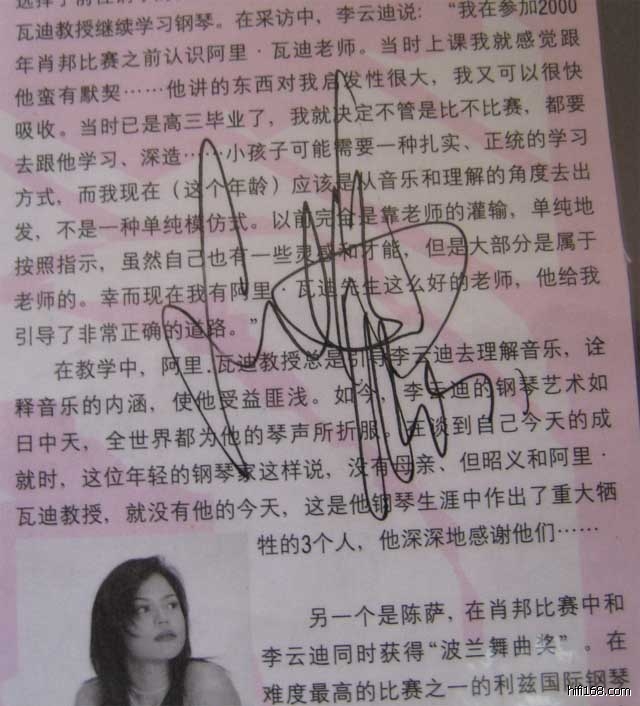 选择了前往
瓦迪教授继续学习钢琴。在采访中，李云迪说：“我在参加2000
年肖邦比赛之前认识阿里·瓦迪老师。当时上课我就感觉跟
他蛮有默契……他讲的东西对我启发性很大，我又可以很快
吸收。当时已是高三毕业了，我就决定不管是比不比赛，都要
去跟他学习、深造……小孩子可能需要一种扎实、正统的学习
方式，而我现在（这个年龄）应该是从音乐和理解的角度去出
发，不是一种单纯模仿式。以前完全是靠老师的灌输，单纯地
按照指示，虽然自己也有一些灵感和才能，但是大部分是属于
老师的。幸而现在我有阿里·瓦迪先生这么好的老师，他给我
引导了非常正确的道路。”
在教学中，阿里·瓦迪教授总是引导李云迪去理解音乐，诠
释音乐的内涵，使他受益匪浅。如今，李云迪的钢琴艺术如
日中天，全世界都为他的琴声所折服。在谈到自己今天的成
就时，这位年轻的钢琴家这样说，没有母亲、但昭义和阿里·
瓦迪教授，就没有他的今天，这是他钢琴生涯中作出了重大牺
牲的3个人，他深深地感谢他们……
另一个是陈萨，在肖邦比赛中和
李云迪同时获得“波兰舞曲奖”。在
难度最高的比赛之一的利兹国际钢琴
hifi168.com